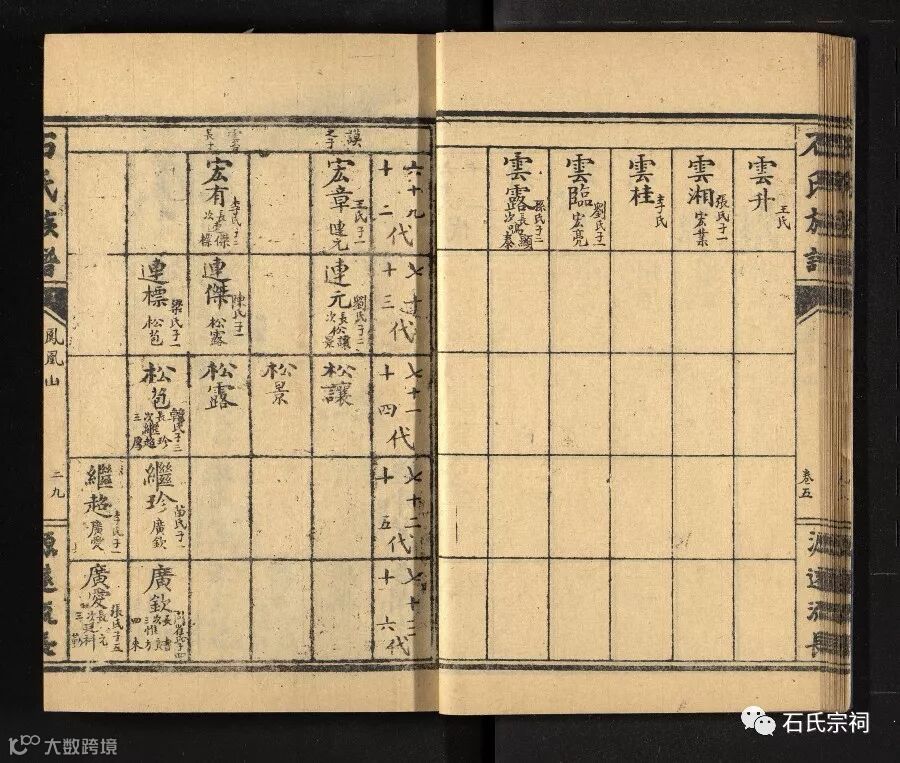 石氏族譜
卷五
源遠流長
雲升
王氏
雲湘
張氏子一
宏業
雲桂
李氏
雲臨
劉氏子一
宏亮
雲露
孫氏子二
謨
之子
六十九代
十二
七十代
十三
七十一代
十四
七十二代
十五
七十三代
十六代
宏章
王氏子一
連元
宏有
李氏子二
長連傑
次連標
連元
劉氏子二
長松讓
次松景
連傑
陳氏子一
松露
連標
梁氏子一
松苞
松讓
松景
松露
松苞
韓氏子三
長繼珍
次繼超
三厚
繼珍
苗氏子一
廣欽
繼超
李氏子一
廣愛
廣欽
廣愛
張氏子五
石氏族譜
鳳凰山
二九
源遠流長
石氏宗祠
大数跨境